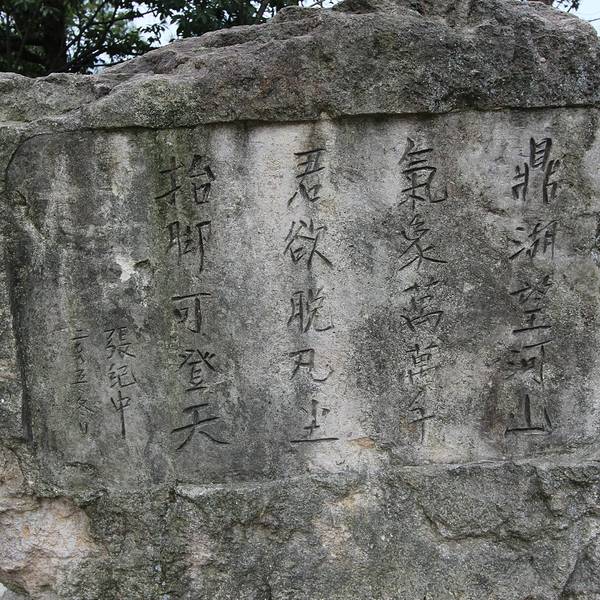 鼎湖望河山
氣象萬萬千
君欲脫凡尘
抬脚可登天
張纪中
二〇〇五冬日